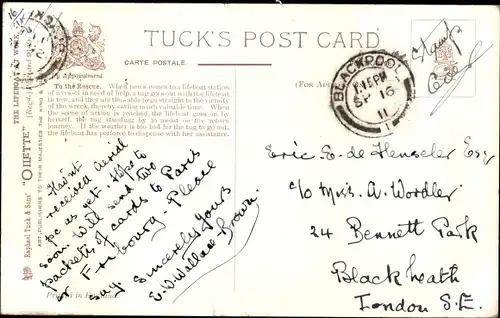 TUCK'S POST CARD
CARTE POSTALE.
By Appointment.
To the Rescue. When news comes to a lifeboat station
of a vessel in need of help, a tug goes out with the lifeboat
in tow, and they are thus able to go straight to the vicinity
of the wreck, thereby saving much valuable time. When
the scene of action is reached, the lifeboat goes on by
herself, the tug standing by to assist on the return
journey. If the weather is too bad for the tug to go out,
the lifeboat has perforce to dispense with her assistance.
Raphael Tuck & Sons' "OILETTE"
THE LIFEBOAT AT WORK
ART PUBLISHERS TO THEIR MAJESTIES THE KING
Havn't
received Aerial
pc as yet. Hope to
soon. Will send two
packets of cards to Paris
or Fribourg - Please
say. Sincerely Yours
E. D. Wallace Brown.
Printed in
BLACKPOOL
SP 16
11
Eric E. de Henseler Esq
c/o Mrs. A. Wordley
24 Bennett Park
Blackheath
London S.E.